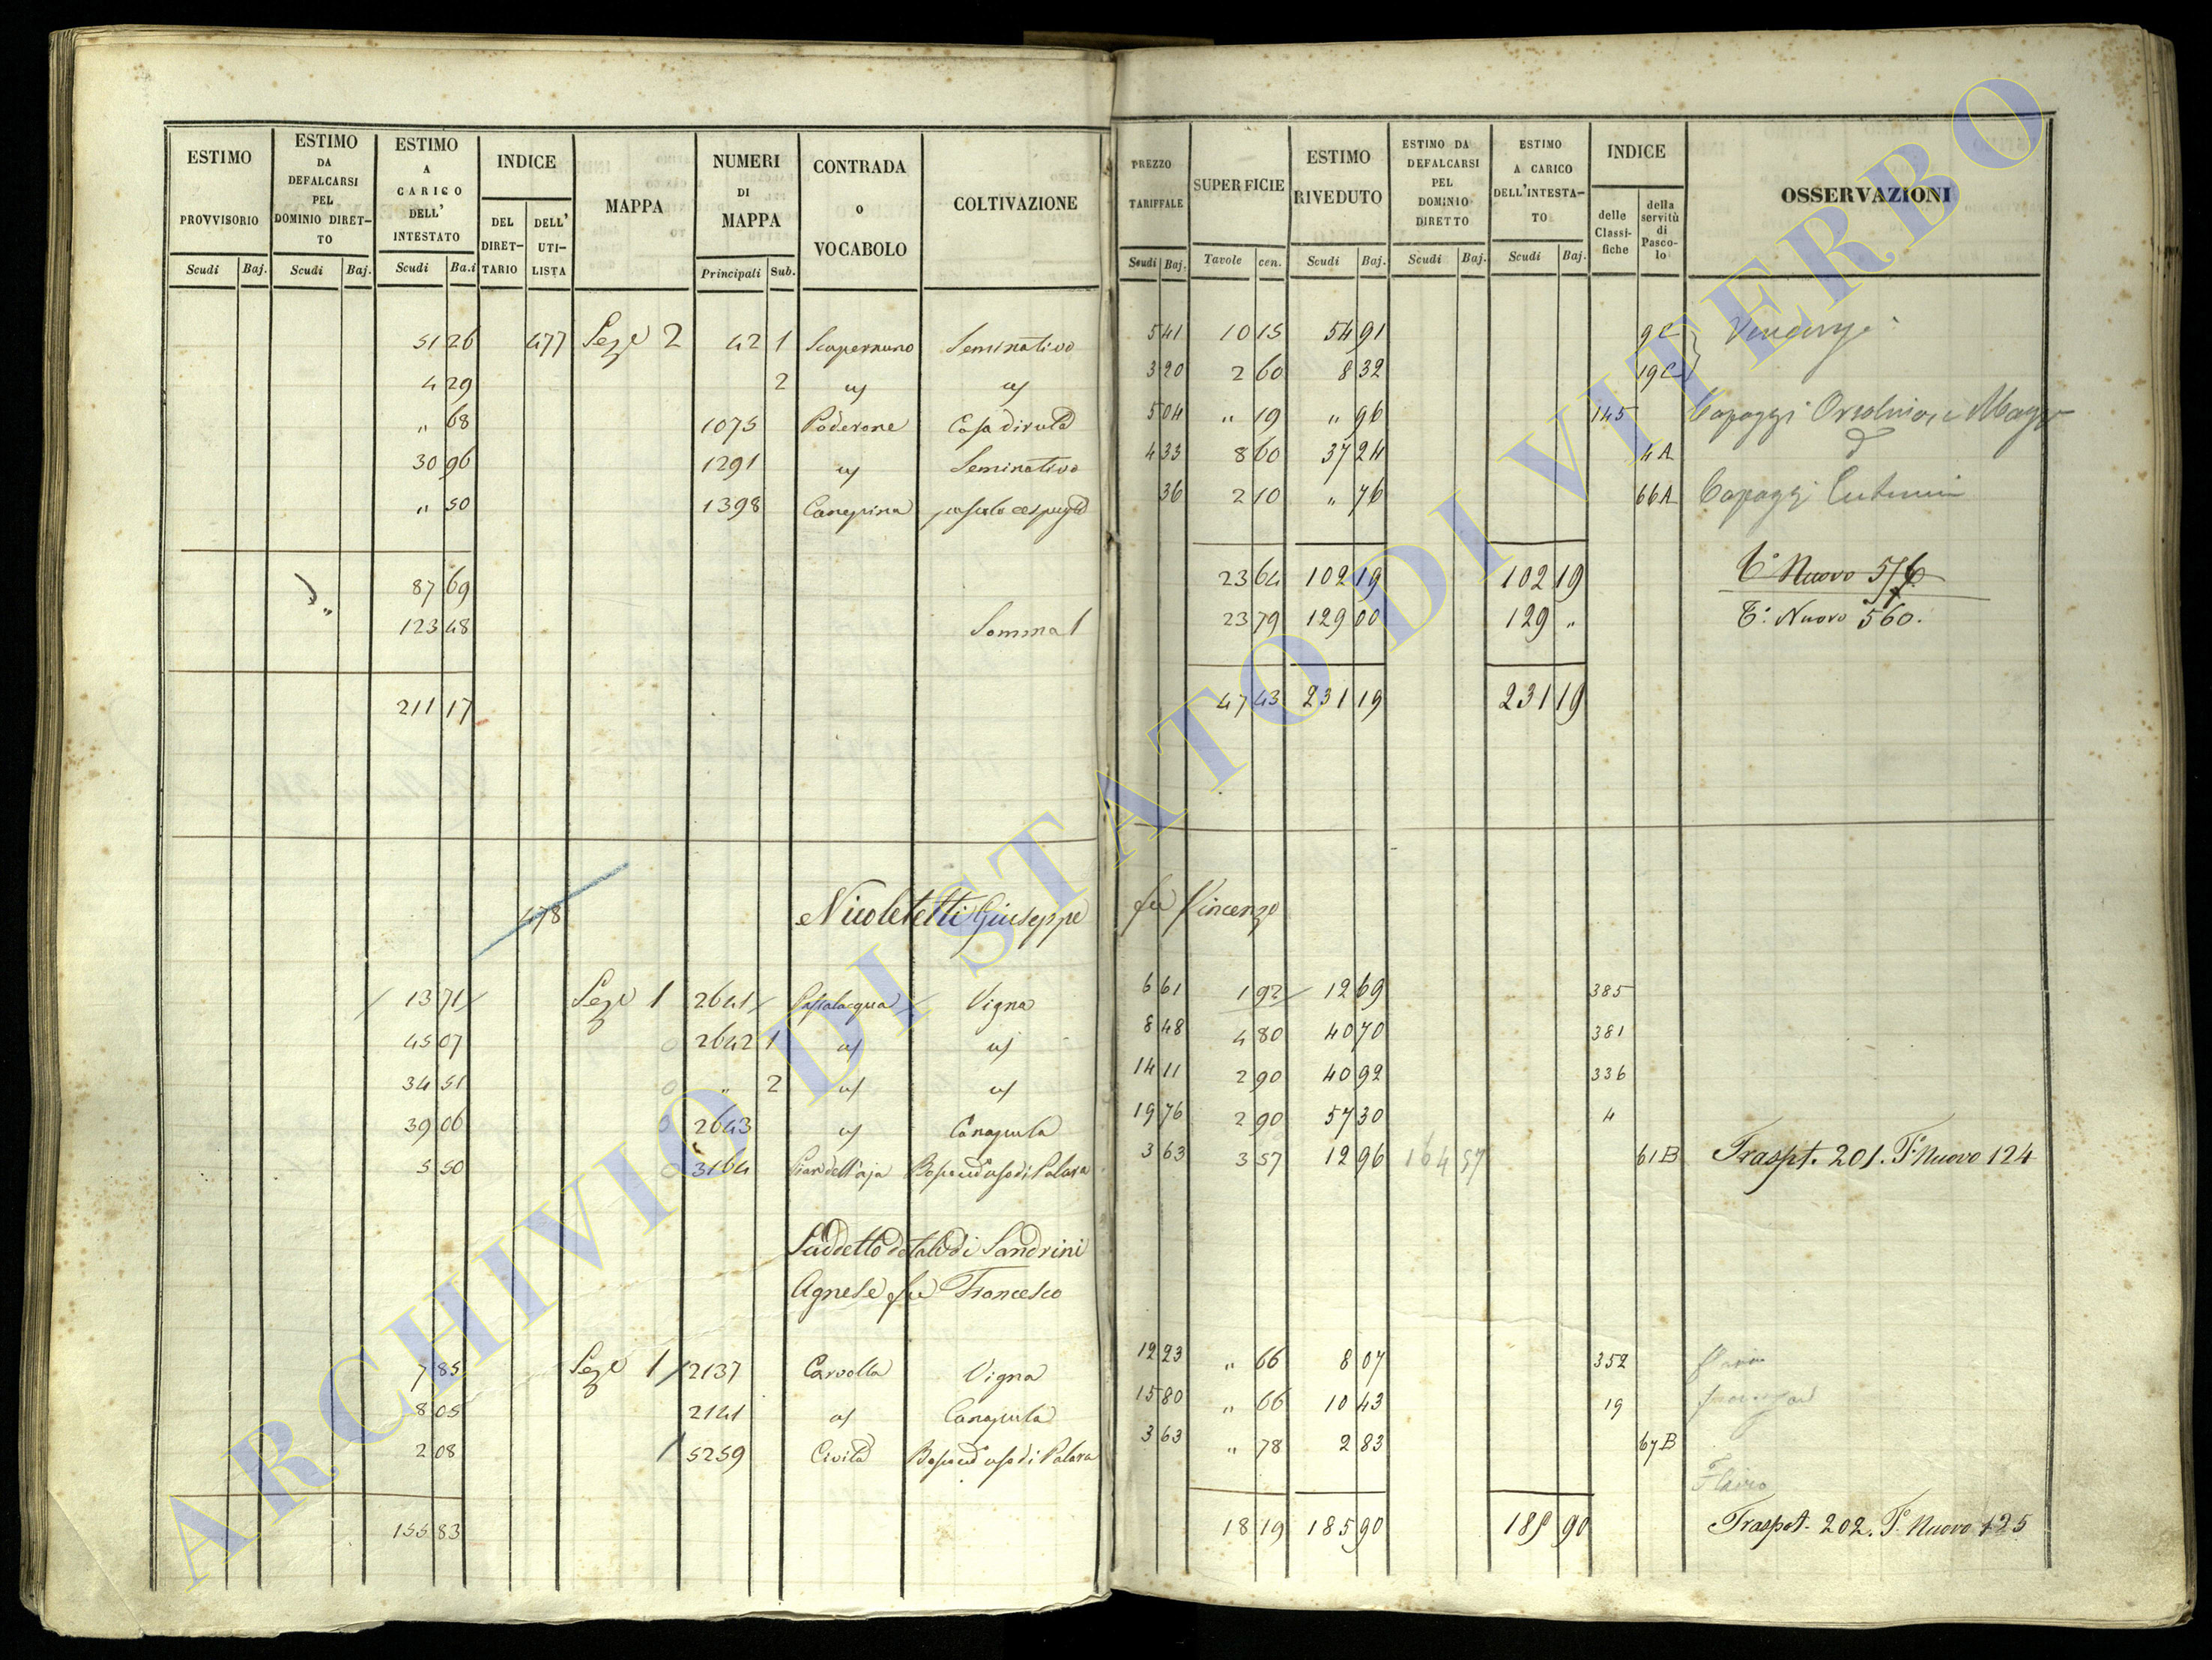 ESTIMO PROVVISORIO Scudi Baj.
ESTIMO DA DEFALCARSI PEL DOMINIO DIRETTO Scudi Baj.
ESTIMO A CARICO DELL' INTESTATO Scudi Ba.i
INDICE DEL DIRETTARIO DELL' UTILISTA
MAPPA
NUMERI DI MAPPA Principali Sub.
CONTRADA o VOCABOLO
COLTIVAZIONE
PREZZO TARIFFALE Scudi Baj.
SUPERFICIE Tavole cen.
ESTIMO RIVEDUTO Scudi Baj.
ESTIMO DA DEFALCARSI PEL DOMINIO DIRETTO Scudi Baj.
ESTIMO A CARICO DELL'INTESTATO Scudi Baj.
INDICE delle Classifiche della servitù di Pascolo
OSSERVAZIONI
51 26 477 Seze 2 42 1 Seminativo 5 41 10 15 54 91 9C
4 29 2 3 20 2 60 8 32 19C
" 68 1075 Poderone Casa diruta 5 04 " 19 " 96 145
30 96 1291 Seminativo 4 33 8 60 37 24 4A
" 50 1398 Canepina 36 2 10 " 76 66A
87 69 23 64 102 19 102 19 T. Nuovo
123 48 Somma 1 23 79 129 00 129 " T. Nuovo 560.
211 17 47 43 231 19 231 19
478 Nicoletetti Giuseppe fu Vincenzo
13 71 Seze 1 2641 Passalacqua Vigna 6 61 1 92 12 69 385
45 07 2642 1 8 48 4 80 40 70 381
34 51 " 2 14 11 2 90 40 92 336
39 06 2643 Canapula 19 76 2 90 57 30 4
5 50 3164 Pian dell'aja Bosco ad uso di Palara 3 63 3 57 12 96 164 57 61B Traspt. 201. T. Nuovo 124
Suddetto dotale di Sandrini
Agnese fu Francesco
7 85 Seze 1 2137 Carvolla Vigna 12 23 " 66 8 07 352
8 05 2141 Canapula 15 80 " 66 10 43 19
2 08 1 5259 Civita Bosco ad uso di Palara 3 63 " 78 2 83 67B
155 83 18 19 185 90 185 90 Traspt. 202. T. Nuovo 125
ARCHIVIO DI STATO DI VITERBO